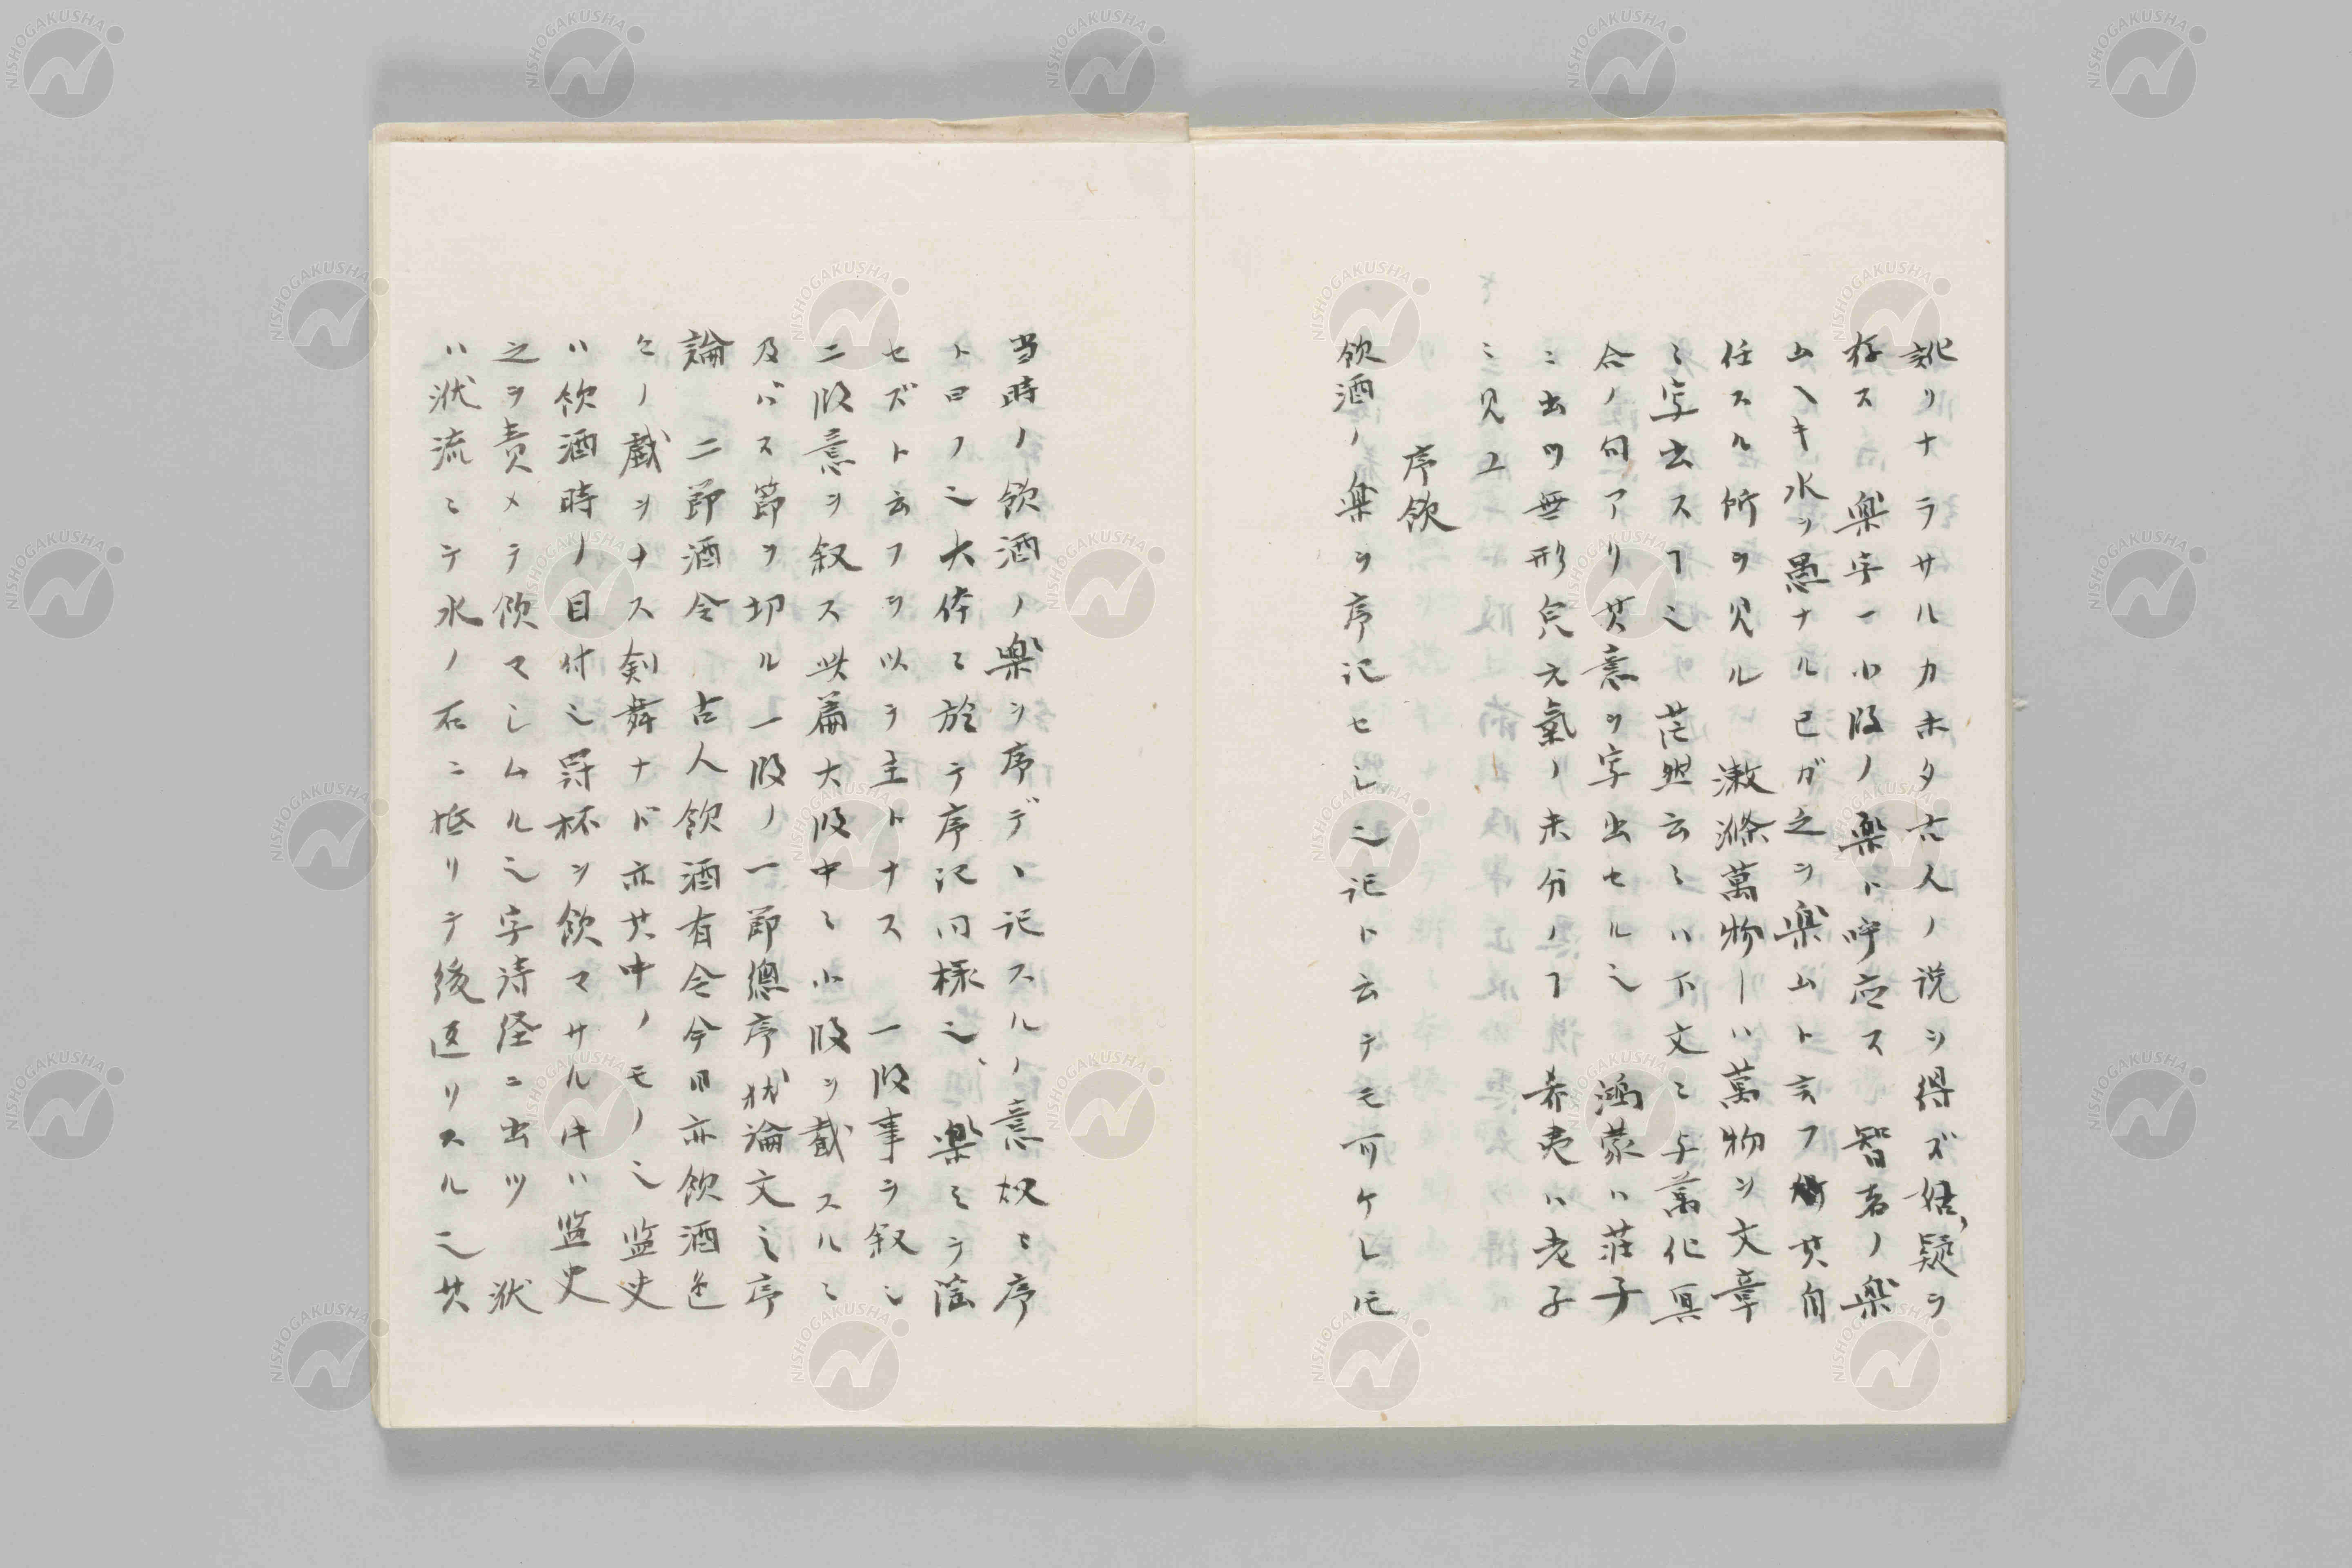 訛リナラサルカホタ古人ノ説ヲ得ズ姑、疑ヲ
存ス 楽字一小段ノ楽ト呼応ス 智者ノ楽
ムヘキ水ヲ愚ナル已ガ之ヲ楽ムト言フ 其自
任スル所ヲ見ル 漱滌萬物ーハ萬物ヲ文章
ミ字出スヿ之 茫然云ミハ下文ミ与萬化冥
合ノ句アリ其意ヲ字出セルミ 鴻蒙ハ荘子
ニ出ツ無形皃元氣ノ未分ノヿ 希夷ハ老子
ミ見ユ
序飲
飲酒ノ楽ヲ序記セし之記ト云テモ可ケレ𪜈
当時ノ飲酒ノ楽ヲ序デヽ記スルノ意故ミ序
ト曰ノ之大体ミ於テ序記同様之、楽ミヲ陰
セズト云フヲ以テ主トナス 一段事ヲ叙し
二段意ヲ叙ス此篇大段中ミ小段ヲ截スルミ
及バス節ヲ切ル一段ノ一節總序状論文之序
論 二節酒令 古人飲酒有令今日亦飲酒色
々ノ戯ヲナス剣舞ナド亦其中ノモノ之監史
ハ飲酒時ノ目付之爵杯ヲ飲マサルキハ監史
之ヲ責メテ飲マしムル之字詩経ニ出ツ 洑
ハ洑流ミテ水ノ石ニ抵リテ後返リスル之其